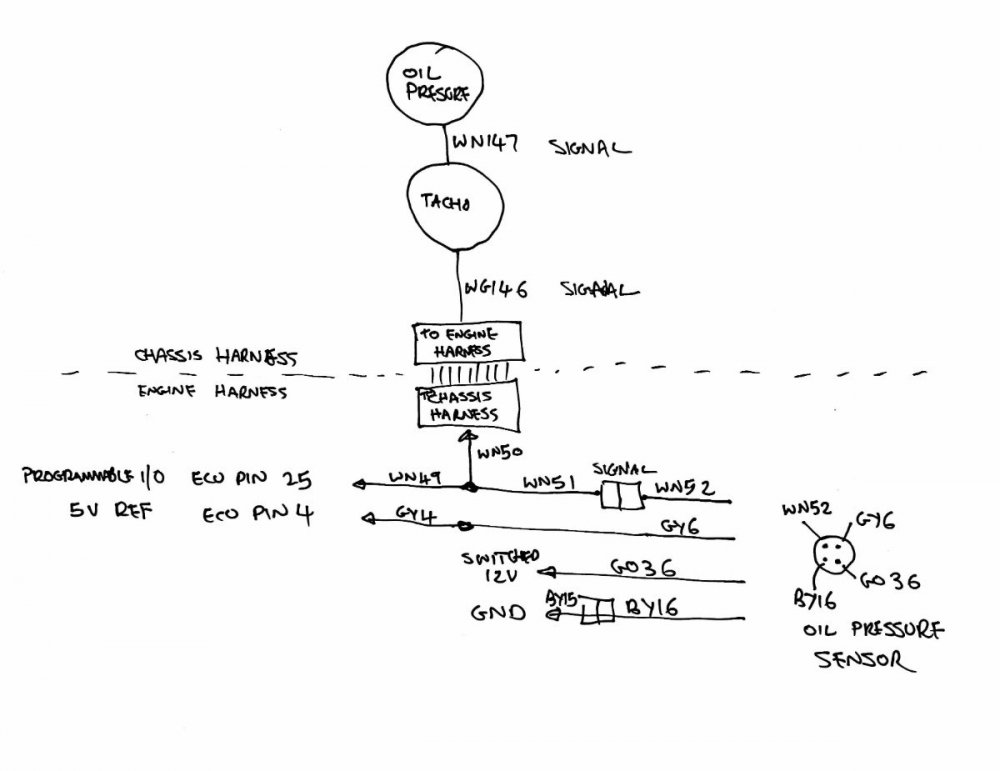 OIL
PRESURE
WN147 SIGNAL
TACHO
WG146 SIGNAL
TO ENGINE
HARNESS
CHASSIS HARNESS
ENGINE HARNESS
TO CHASSIS
HARNESS
WN50
PROGRAMMABLE I/O ECU PIN 25 WN49 WN51 SIGNAL WN52
5V REF ECU PIN 4 GY4 GY6
SWITCHED
12V GO36
GND BY15 BY16
WN52 GY6
BY16 GO36
OIL PRESSURE
SENSOR